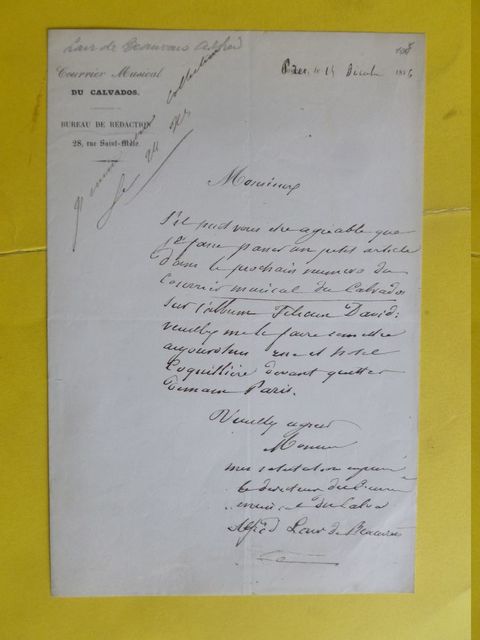 Lair de Beauvais Alfred
Courrier Musical
DU CALVADOS.
BUREAU DE RÉDACTION
28, rue Saint-Mâlo.
collection
le 15 Décembre 1856
Monsieur
S'il peut vous être agréable que
je fasse passer un petit article
dans le prochain numéro du
Courrier musical du Calvados
sur l'album Félicien David;
veuillez me le faire remettre
aujourd'hui rue et hôtel
Coquillière devant quitter
demain Paris.
Veuillez agréer
Monsieur
mes salutations
Le directeur du Courrier
musical du Calvados
Alfred Lair de Beauvais